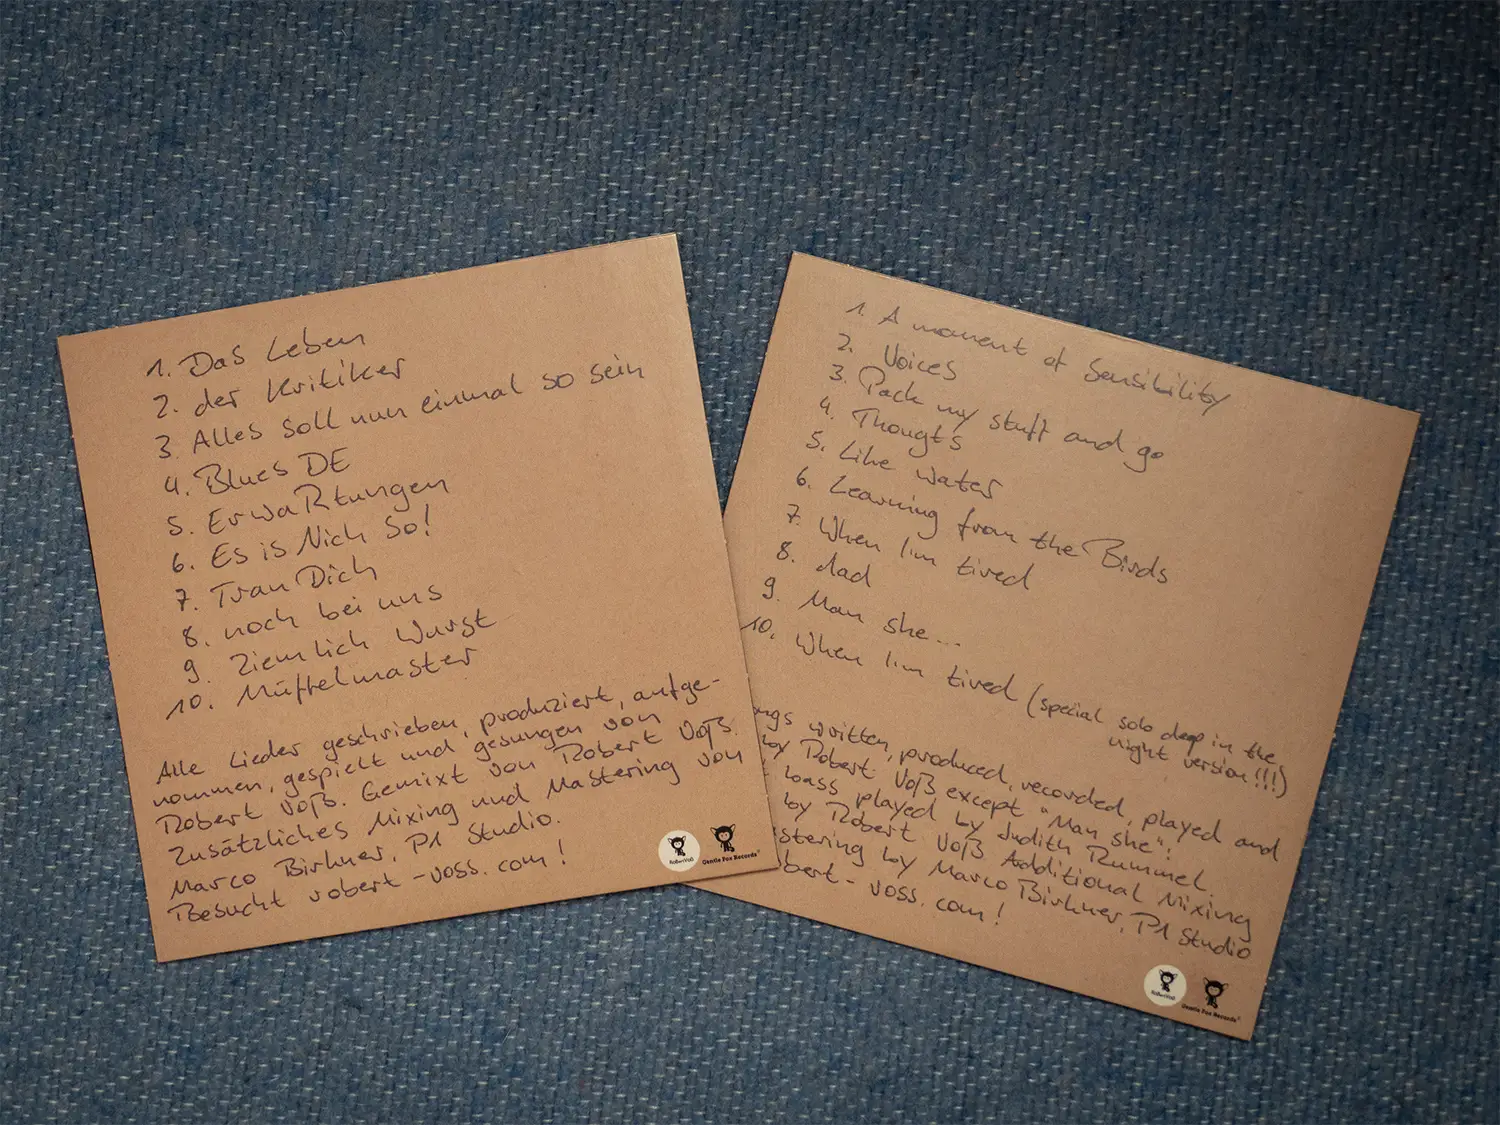 1. Das Leben
2. der Kritiker
3. Alles soll nun einmal so sein
4. Blues DE
5. ErwaRtungen
6. Es is Nich So!
7. Trau Dich
8. noch bei uns
9. Ziemlich Wurst
10. Müffelmaster
Alle Lieder geschrieben, produziert, aufge-
nommen, gespielt und gesungen von
Robert Voß. Gemixt von Robert Voß.
Zusätzliches Mixing und Mastering von
Marco Birkner, P1 Studio.
Besucht robert-voss.com!
RoBertVoß
Gentle Fox Records
1. A moment of Sensibility
2. Voices
3. Pack my stuff and go
4. Thougts
5. Like water
6. Learning from the Birds
7. When I'm tired
8. dad
9. Man she...
10. When I'm tired (special solo deep in the
night version!!!)
written, produced, recorded, played and
by Robert Voß except "Man she":
bass played by Judith Rummel.
by Robert Voß Additional Mixing
by Marco Birkner, P1 Studio
-voss.com!
RoBertVoß
Gentle Fox Records